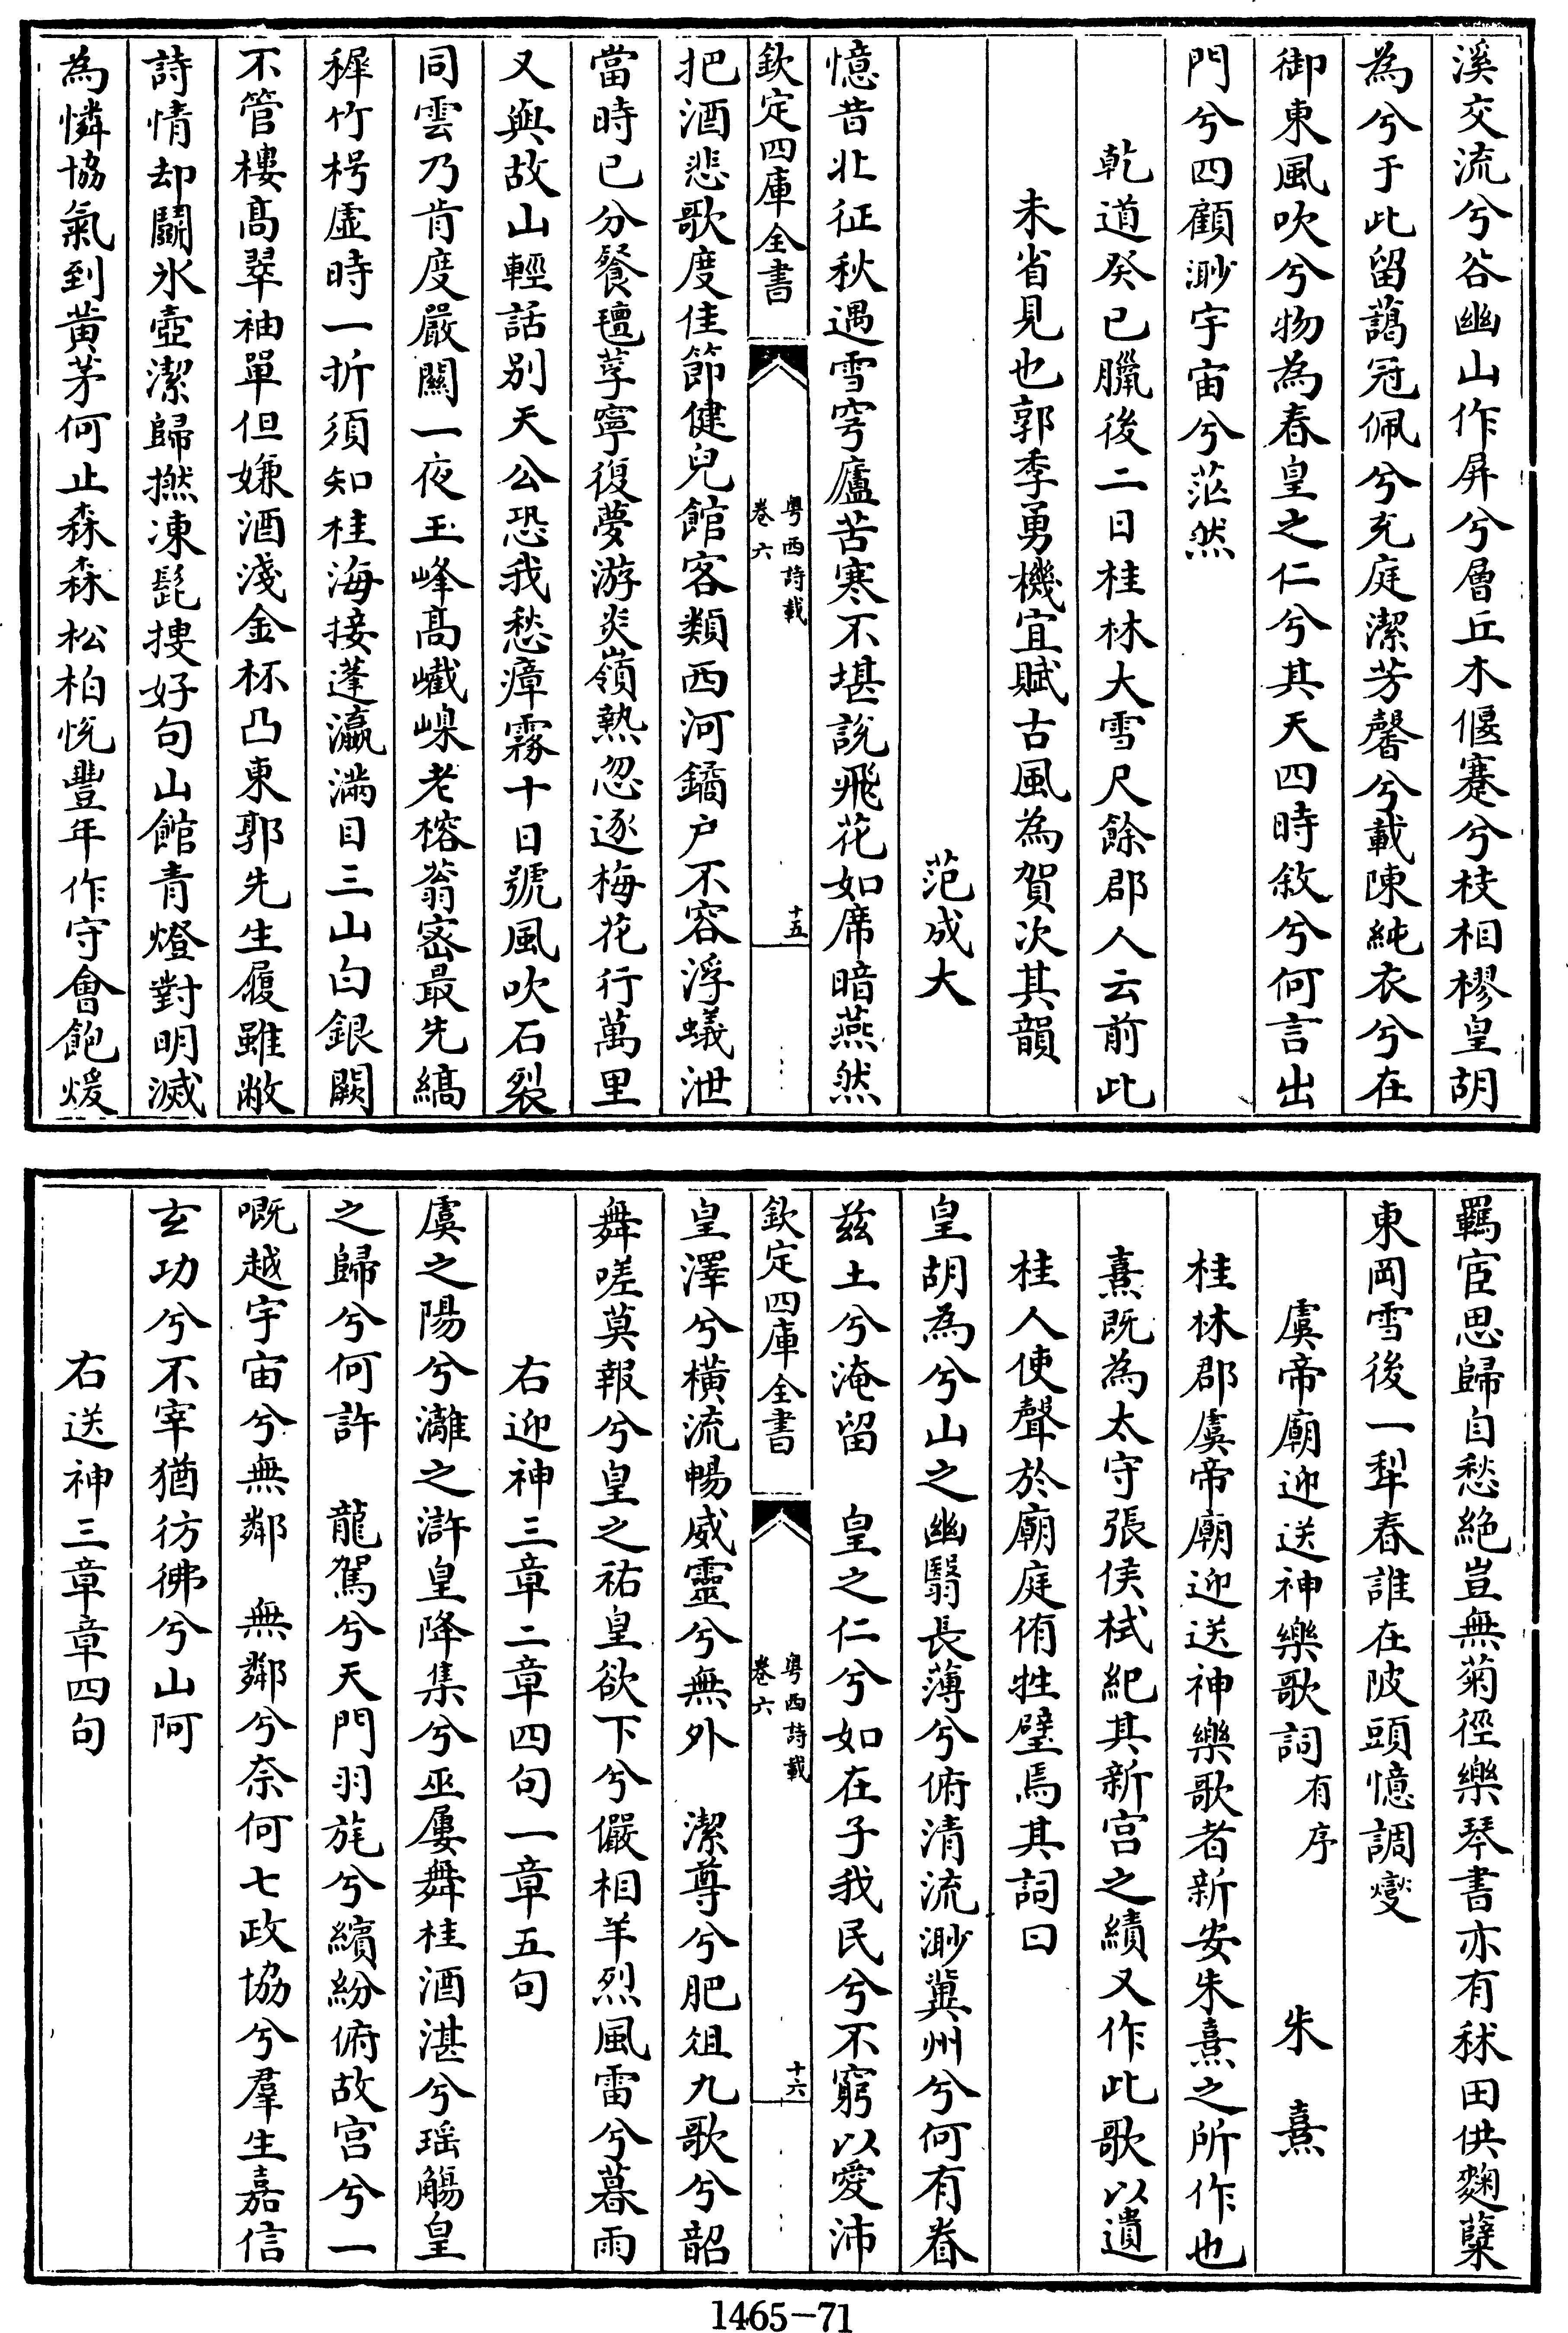 溪交流兮谷幽山作屏兮層丘木偃蹇兮枝相樛皇胡
為兮于此留藹冠佩兮充庭潔芳馨兮載陳純衣兮在
御東風吹兮物為春皇之仁兮其天四時敘兮何言出
門兮四顧渺宇宙兮茫然
乾道癸已臘後二日桂林大雪尺餘郡人云前此
未省見也郭季勇機宜賦古風為賀次其韻
范成大
憶昔北征秋遇雪穹廬苦寒不堪說飛花如席暗燕然
欽定四庫全書
粤西詩載
卷六
十五
把酒悲歌度佳節健兒館客類西河鐍户不容浮蟻泄
當時已分餐氊莩寧復夢游炎嶺熱忽逐梅花行萬里
又與故山輕話别天公恐我愁瘴霧十日號風吹石裂
同雲乃肯度嚴關一夜玉峰髙嶻嵲老榕蓊宻最先縞
穉竹枵虚時一折須知桂海接蓬瀛滿目三山白銀闕
不管樓髙翠袖單但嫌酒淺金杯凸東郭先生履雖敝
詩情却鬭氷壺潔歸撚凍髭捜好句山館青燈對明滅
為憐協氣到黄茅何止森森松柏悦豐年作守會飽煖
羈宦思歸自愁絶豈無菊徑樂琴書亦有秫田供麴糵
東岡雪後一犁春誰在陂頭憶調爕
虞帝廟迎送神樂歌詞有序
朱熹
桂林郡虞帝廟迎送神樂歌者新安朱熹之所作也
熹既為太守張侯栻紀其新宫之績又作此歌以遺
桂人使聲於廟庭侑牲璧焉其詞曰
皇胡為兮山之幽翳長薄兮俯清流渺冀州兮何有眷
兹土兮淹留 皇之仁兮如在子我民兮不窮以愛沛
欽定四庫全書
粤西詩載
卷六
十六
皇澤兮橫流暢威靈兮無外 潔尊兮肥俎九歌兮韶
舞嗟莫報兮皇之祐皇欲下兮儼相羊烈風雷兮暮雨
右迎神三章二章四句一章五句
虞之陽兮灕之滸皇降集兮巫屢舞桂酒湛兮瑶觴皇
之歸兮何許 龍駕兮天門羽旄兮繽紛俯故宫兮一
嘅越宇宙兮無鄰 無鄰兮奈何七政協兮羣生嘉信
玄功兮不宰猶彷彿兮山阿
右送神三章章四句
1465-71